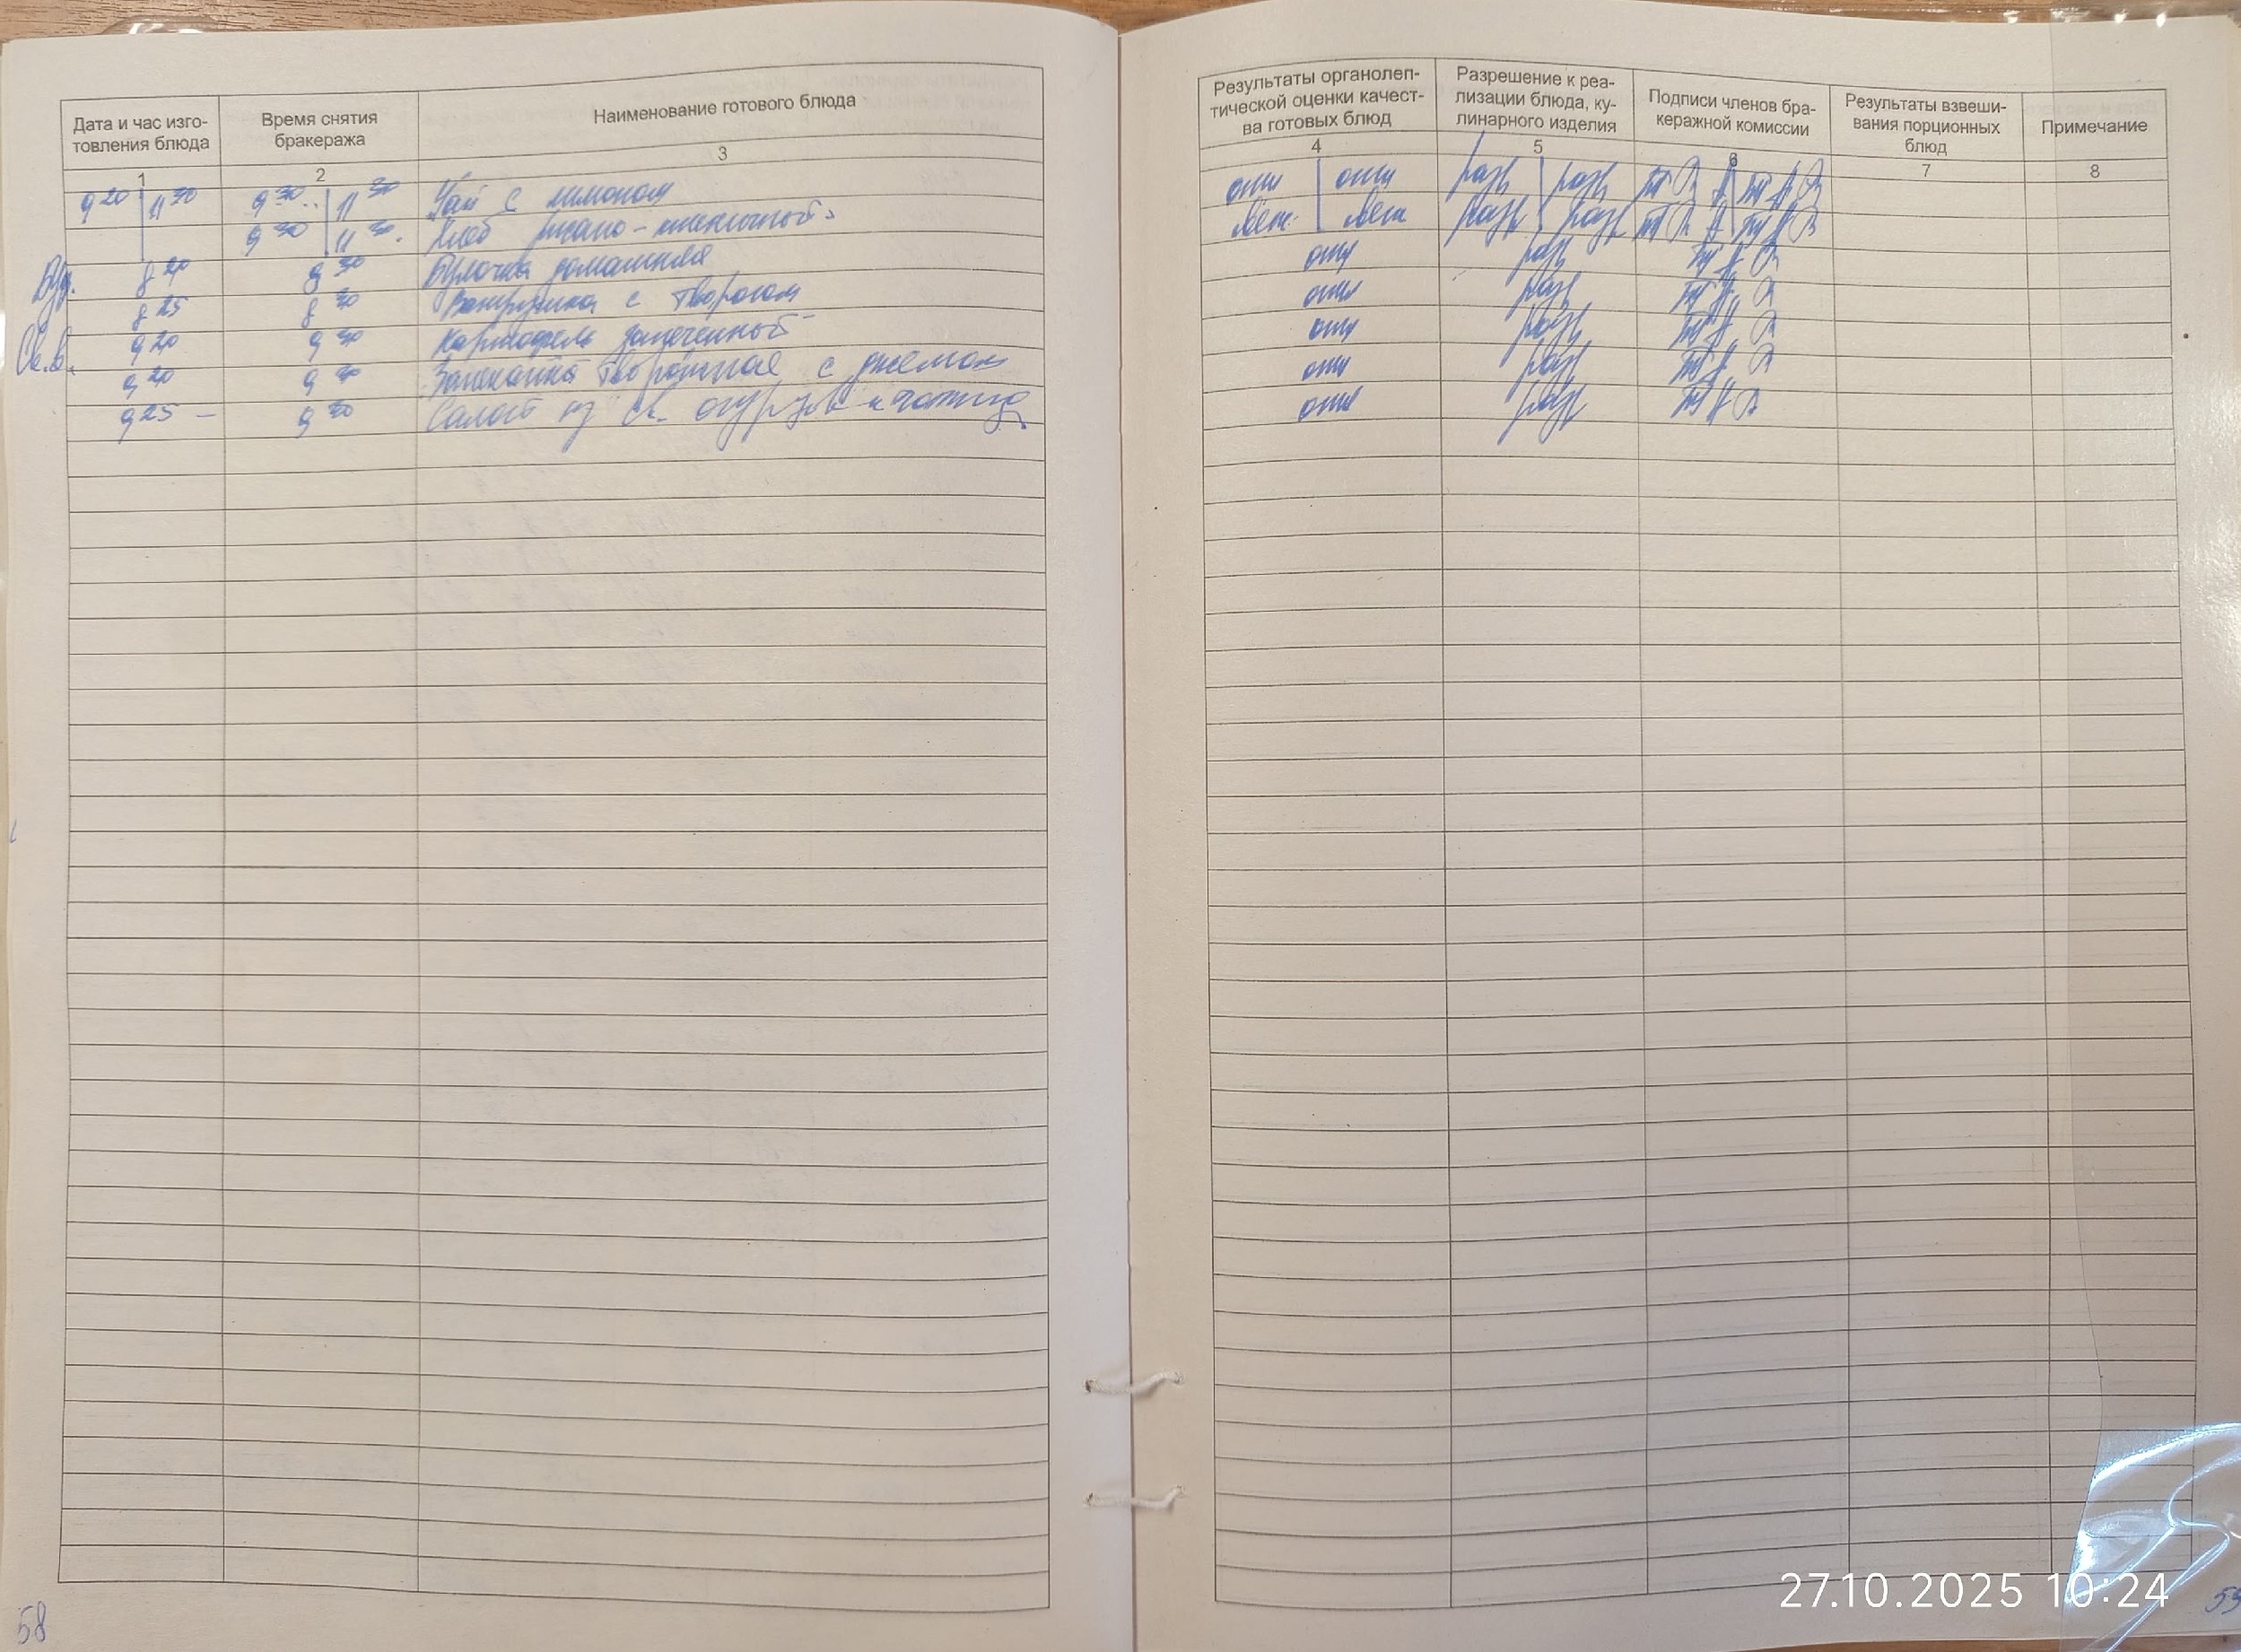 Дата и час изго-
товления блюда
Время снятия
бракеража
Наименование готового блюда
1
2
3
9 20 11 20 9 30 11 30 Чай с лимоном
9 30 11 30 Хлеб ржано-пшеничный
8 20 8 30 Булочка домашняя
8 25 8 30 Ватрушка с творогом
Св.в. 9 20 9 30 Картофель запеченный
9 20 9 30 Запеканка творожная с джемом
9 25 – 9 30 Салат из св. огурцов и
58
Результаты органолеп-
тической оценки качест-
ва готовых блюд
Разрешение к реа-
лизации блюда, ку-
линарного изделия
Подписи членов бра-
керажной комиссии
Результаты взвеши-
вания порционных
блюд
Примечание
4
5
6
7
8
отл отл разр разр
разр разр
отл разр
отл разр
отл разр
отл разр
отл разр
27.10.2025 10:24
59